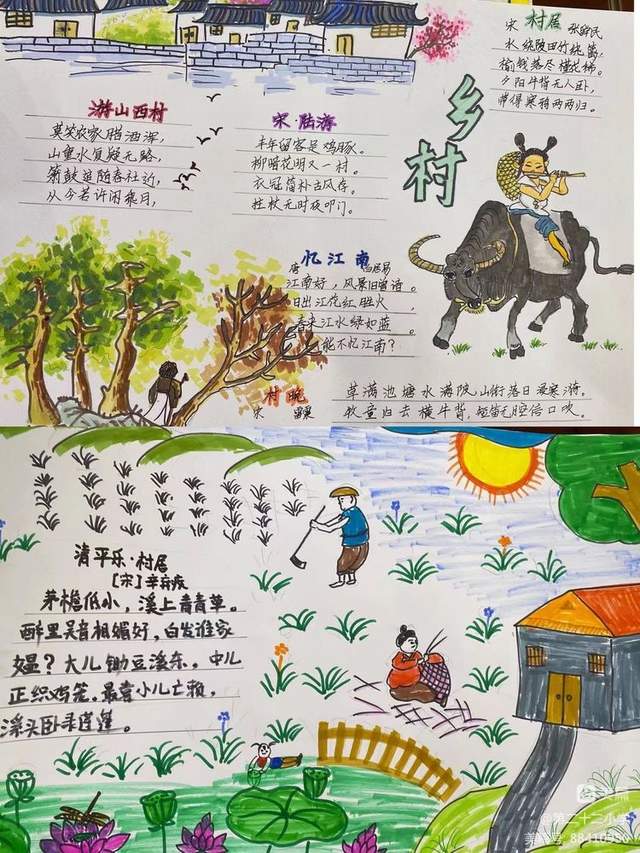 宋 村居 张舜民
水绕陂田竹绕篱,
榆钱落尽槿花稀。
夕阳牛背无人卧,
带得寒鸦两两归。
乡村
游山西村
莫笑农家腊酒浑,
山重水复疑无路,
箫鼓追随春社近,
从今若许闲乘月,
宋·陆游
丰年留客足鸡豚。
柳暗花明又一村。
衣冠简朴古风存。
拄杖无时夜叩门。
忆江南
唐 白居易
江南好,风景旧曾谙。
日出江花红胜火,
春来江水绿如蓝。
能不忆江南?
村晚
宋 雷震
草满池塘水满陂,山衔落日浸寒漪。
牧童归去横牛背,短笛无腔信口吹。
清平乐·村居
[宋]辛弃疾
茅檐低小,溪上青青草。
醉里吴音相媚好,白发谁家
媪?大儿锄豆溪东。中儿
正织鸡笼。最喜小儿亡赖,
溪头卧剥莲蓬。
美篇
@第二十三小学
美篇号:88410950